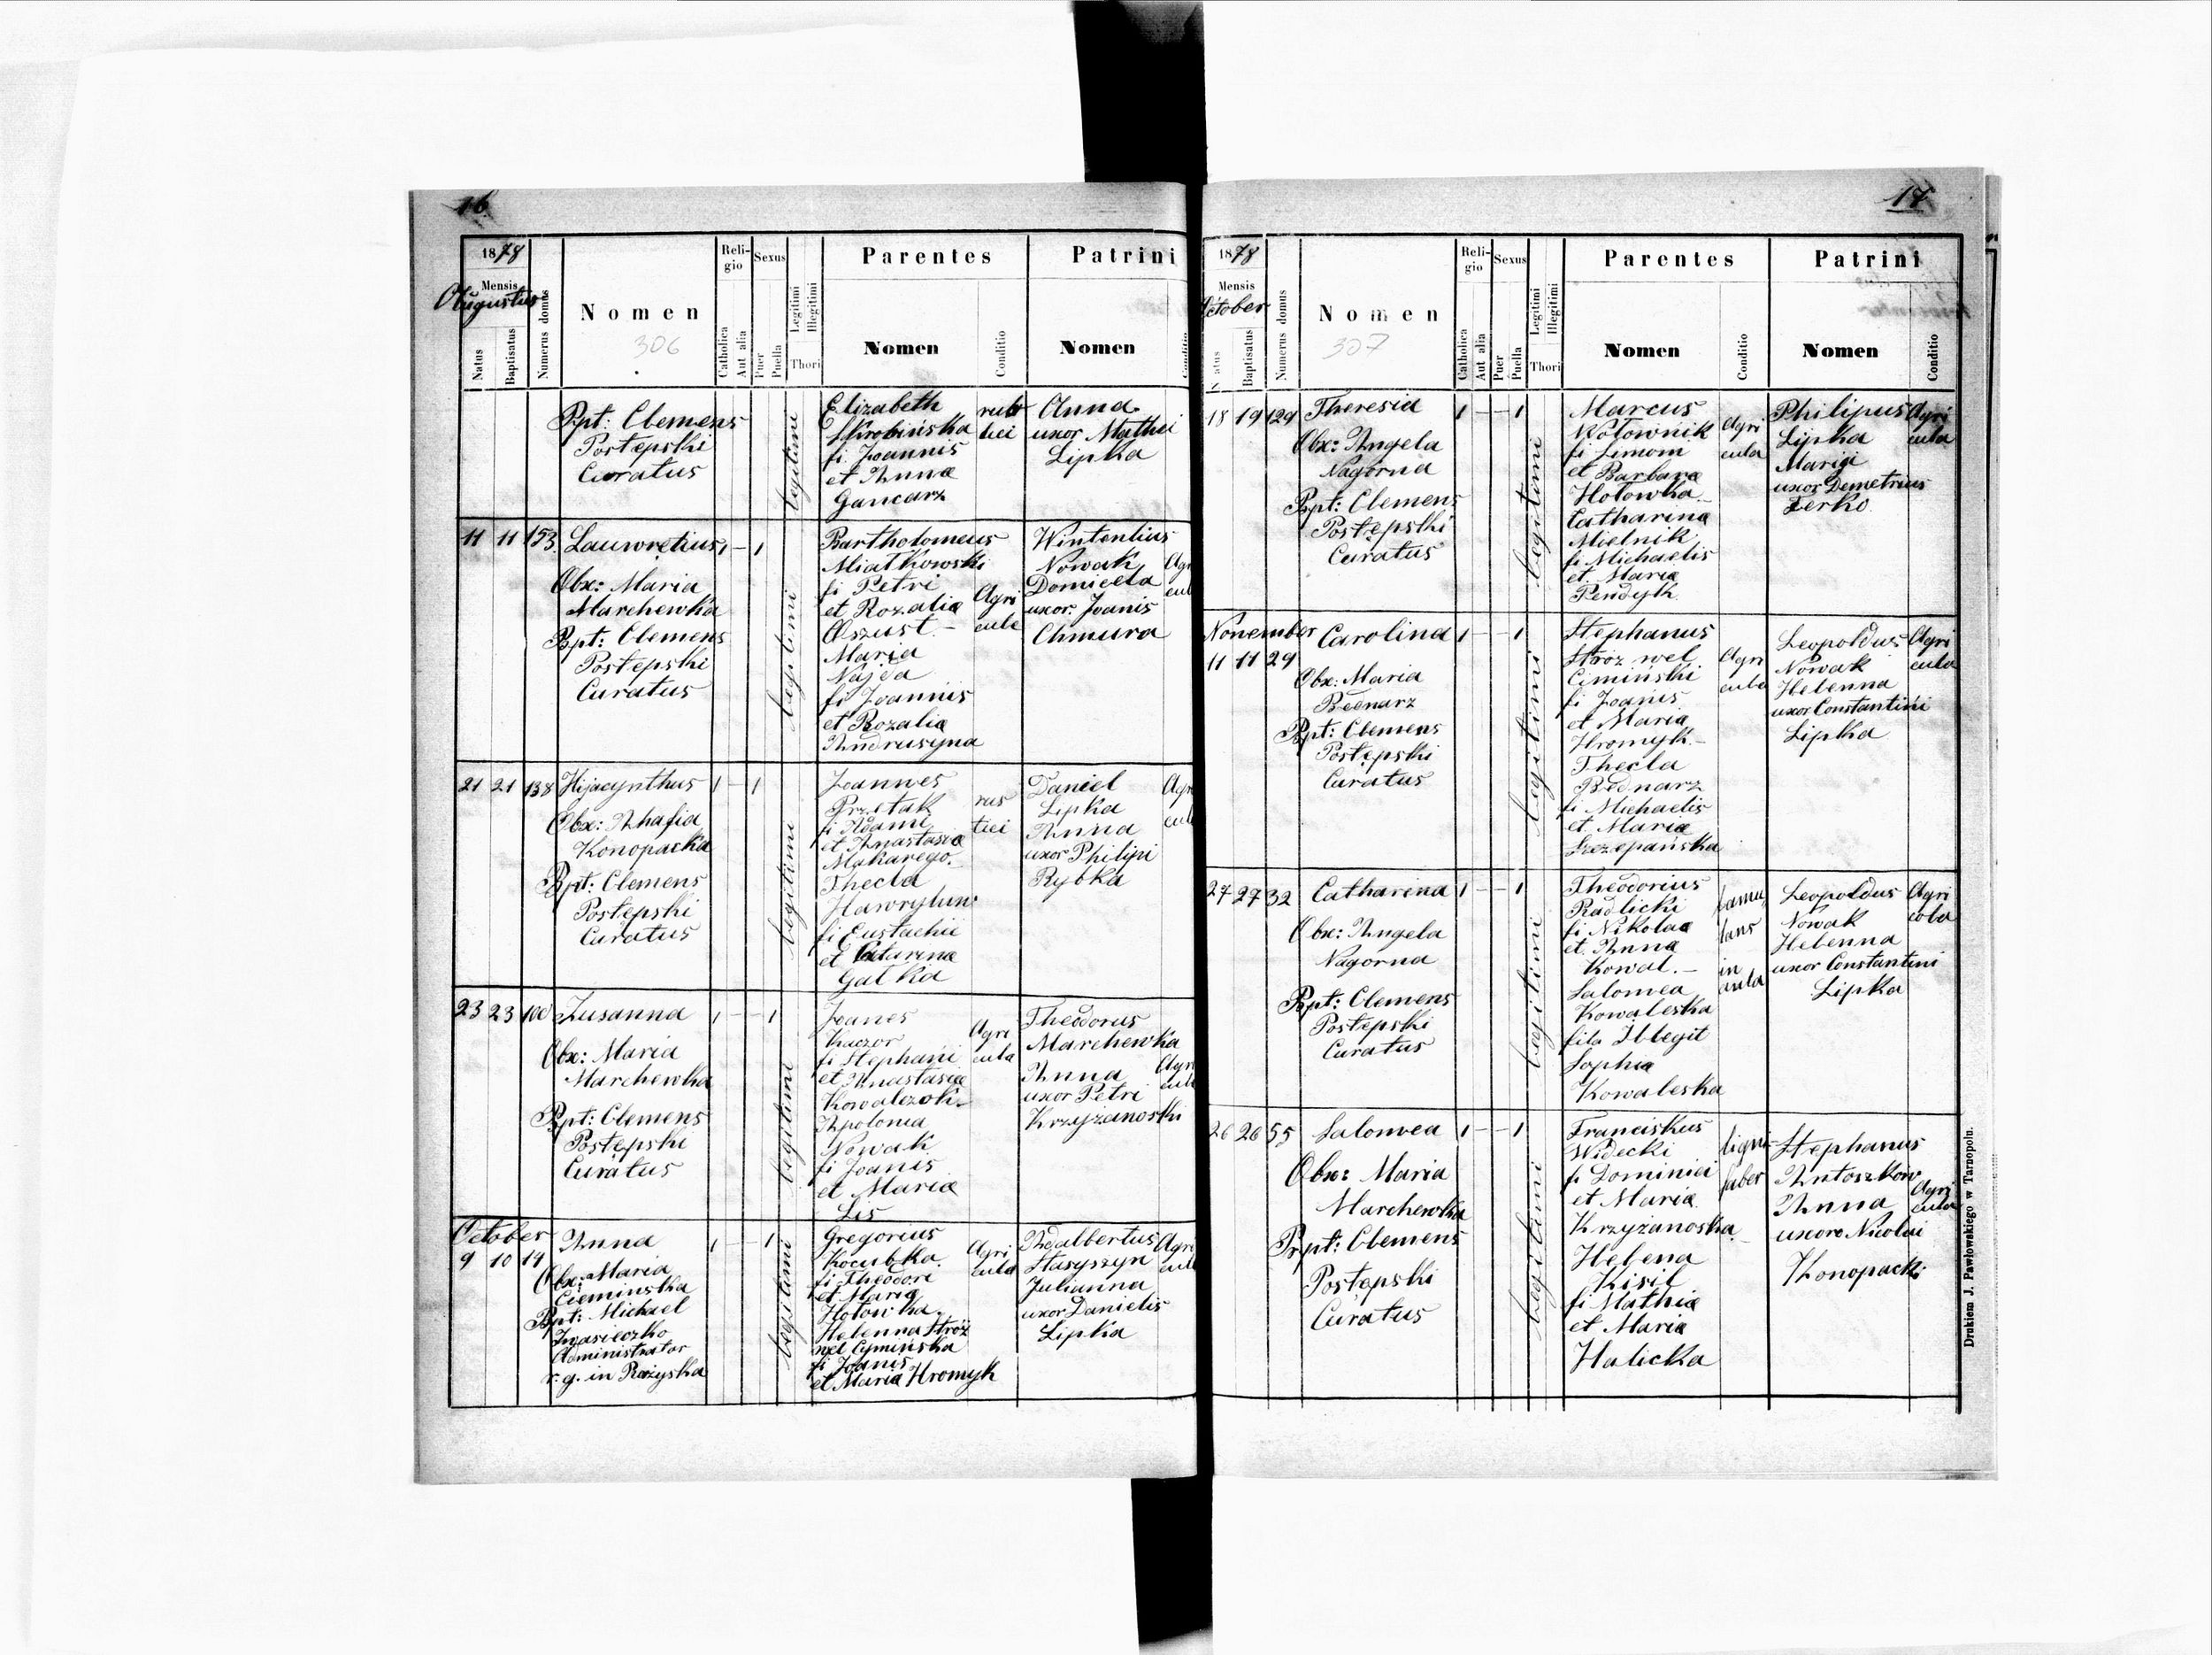 16
1878
Mensis
Augustus
Natus
Baptisatus
Numerus domus
Nomen
306
Religio
Catholica
Aut alia
Sexus
Puer
Puella
Legitimi
Illegitimi
Thori
Parentes
Nomen
Conditio
Patrini
Nomen
Bpt: Clemens
Postepski
Curatus
legitimi
Elizabeth
Skrobińska
fi Joannis
et Anna
Gancarz
rusticii
Anna
uxor Mathei
Lipka
11 11 153 Lauwretius 1 – 1
Obx: Maria
Marchewka
Bpt: Clemens
Postepski
Curatus
legitimi
Bartholomeus
Miatkowski
fi Petri
et Rozalia
Oszust –
Maria
Najda
fi Joannis
et Rozalia
Andrusyna
Agri
cula
Wintentius
Nowak
Domicela
uxor. Joanis
Chmura
21 21 138 Hijacynthus 1 – 1
Obx: Ahafia
Konopacka
Bpt: Clemens
Postepski
Curatus
legitimi
Joannes
Przetak
fi Adami
et Anastasia
Makarego.
Thecla
Hawryluw
fi Eustachii
et Catarina
Gałka
rus
tici
Daniel
Lipka
Anna
uxor Philipi
Rybka
23 23 100 Zusanna 1 – – 1
Obx: Maria
Marchewka
Bpt: Clemens
Postepski
Curatus
legitimi
Joanes
Kaczor
fi Stephani
et Anastasia
Kowalczok –
Apolonia
Nowak
fi Joanis
et Maria
Lis
Agri
cula
Theodorus
Marchewka
Anna
uxor Petri
Krzyżanoski
October
9 10 14 Anna 1 – 1
Obx: Maria
Cieminska
Bpt: Michael
Iwasieczko
Administrator
r. g. in Rożyska
legitimi
Gregorius
Kocubka.
fi Theodori
et Maria
Hołowka.
Helenna Stróż
wel Cymińska
fi Joanis
et Maria Hromyk
Agri
cula
Adalbertus
Stasyszyn
Julianna
uxor Danielis
Lipka
17
1878
Mensis
October
Natus
Baptisatus
Numerus domus
Nomen
307
Religio
Catholica
Aut alia
Sexus
Puer
Puella
Legitimi
Illegitimi
Thori
Parentes
Nomen
Conditio
Patrini
Nomen
Conditio
18 19 129 Theresia 1 – – 1
Obx: Angela
Nagorna
Bpt: Clemens
Postępski
Curatus
legitimi
Marcus
Kołownik
fi Simom
et Barbara
Hołowka –
Catharina
Mielnik
fi Michaelis
et Maria
Pendyk
Agri
cula
Philipus
Lipka
Marigi
uxor Demetrius
Ferko
Agri
cula
November
11 11 29 Carolina 1 – – 1
Obx: Maria
Bednarz
Bpt: Clemens
Postępski
Curatus
legitimi
Stephanus
Stróz wel
Cimiński
fi Joanis
et Maria
Hromyk –
Thecla
Bednarz
fi Michaelis
et Maria
Szczepańska
Agri
cula
Leopoldus
Nowak
Helenna
uxor Constantini
Lipka
Agri
cula
27 27 32 Catharina 1 – – 1
Obx: Angela
Nagorna
Bpt: Clemens
Postepski
Curatus
legitimi
Theodorius
Radlicki
fi Nikolaa
et Anna
Kowal. –
Salomea
Kowaleska
fila Illegit
Sophia
Kowaleska
famu
lans
in
aula
Leopoldus
Nowak
Helenna
uxor Constantini
Lipka
Agri
cola
26 26 55 Salomea 1 – – 1
Obx: Maria
Marchewka
Bpt: Clemens
Postępski
Curatus
legitimi
Franciskus
Widecki
fi Dominici
et Maria
Krzyżanoska –
Helena
Kisil
fi Mathia
et Maria
Halicka
ligni
faber
Stephanus
Antoszkow
Anna
uxore Nicolai
Konopacki
Agri
cula
Drukiem J. Pawłowskiego w Tarnopolu.